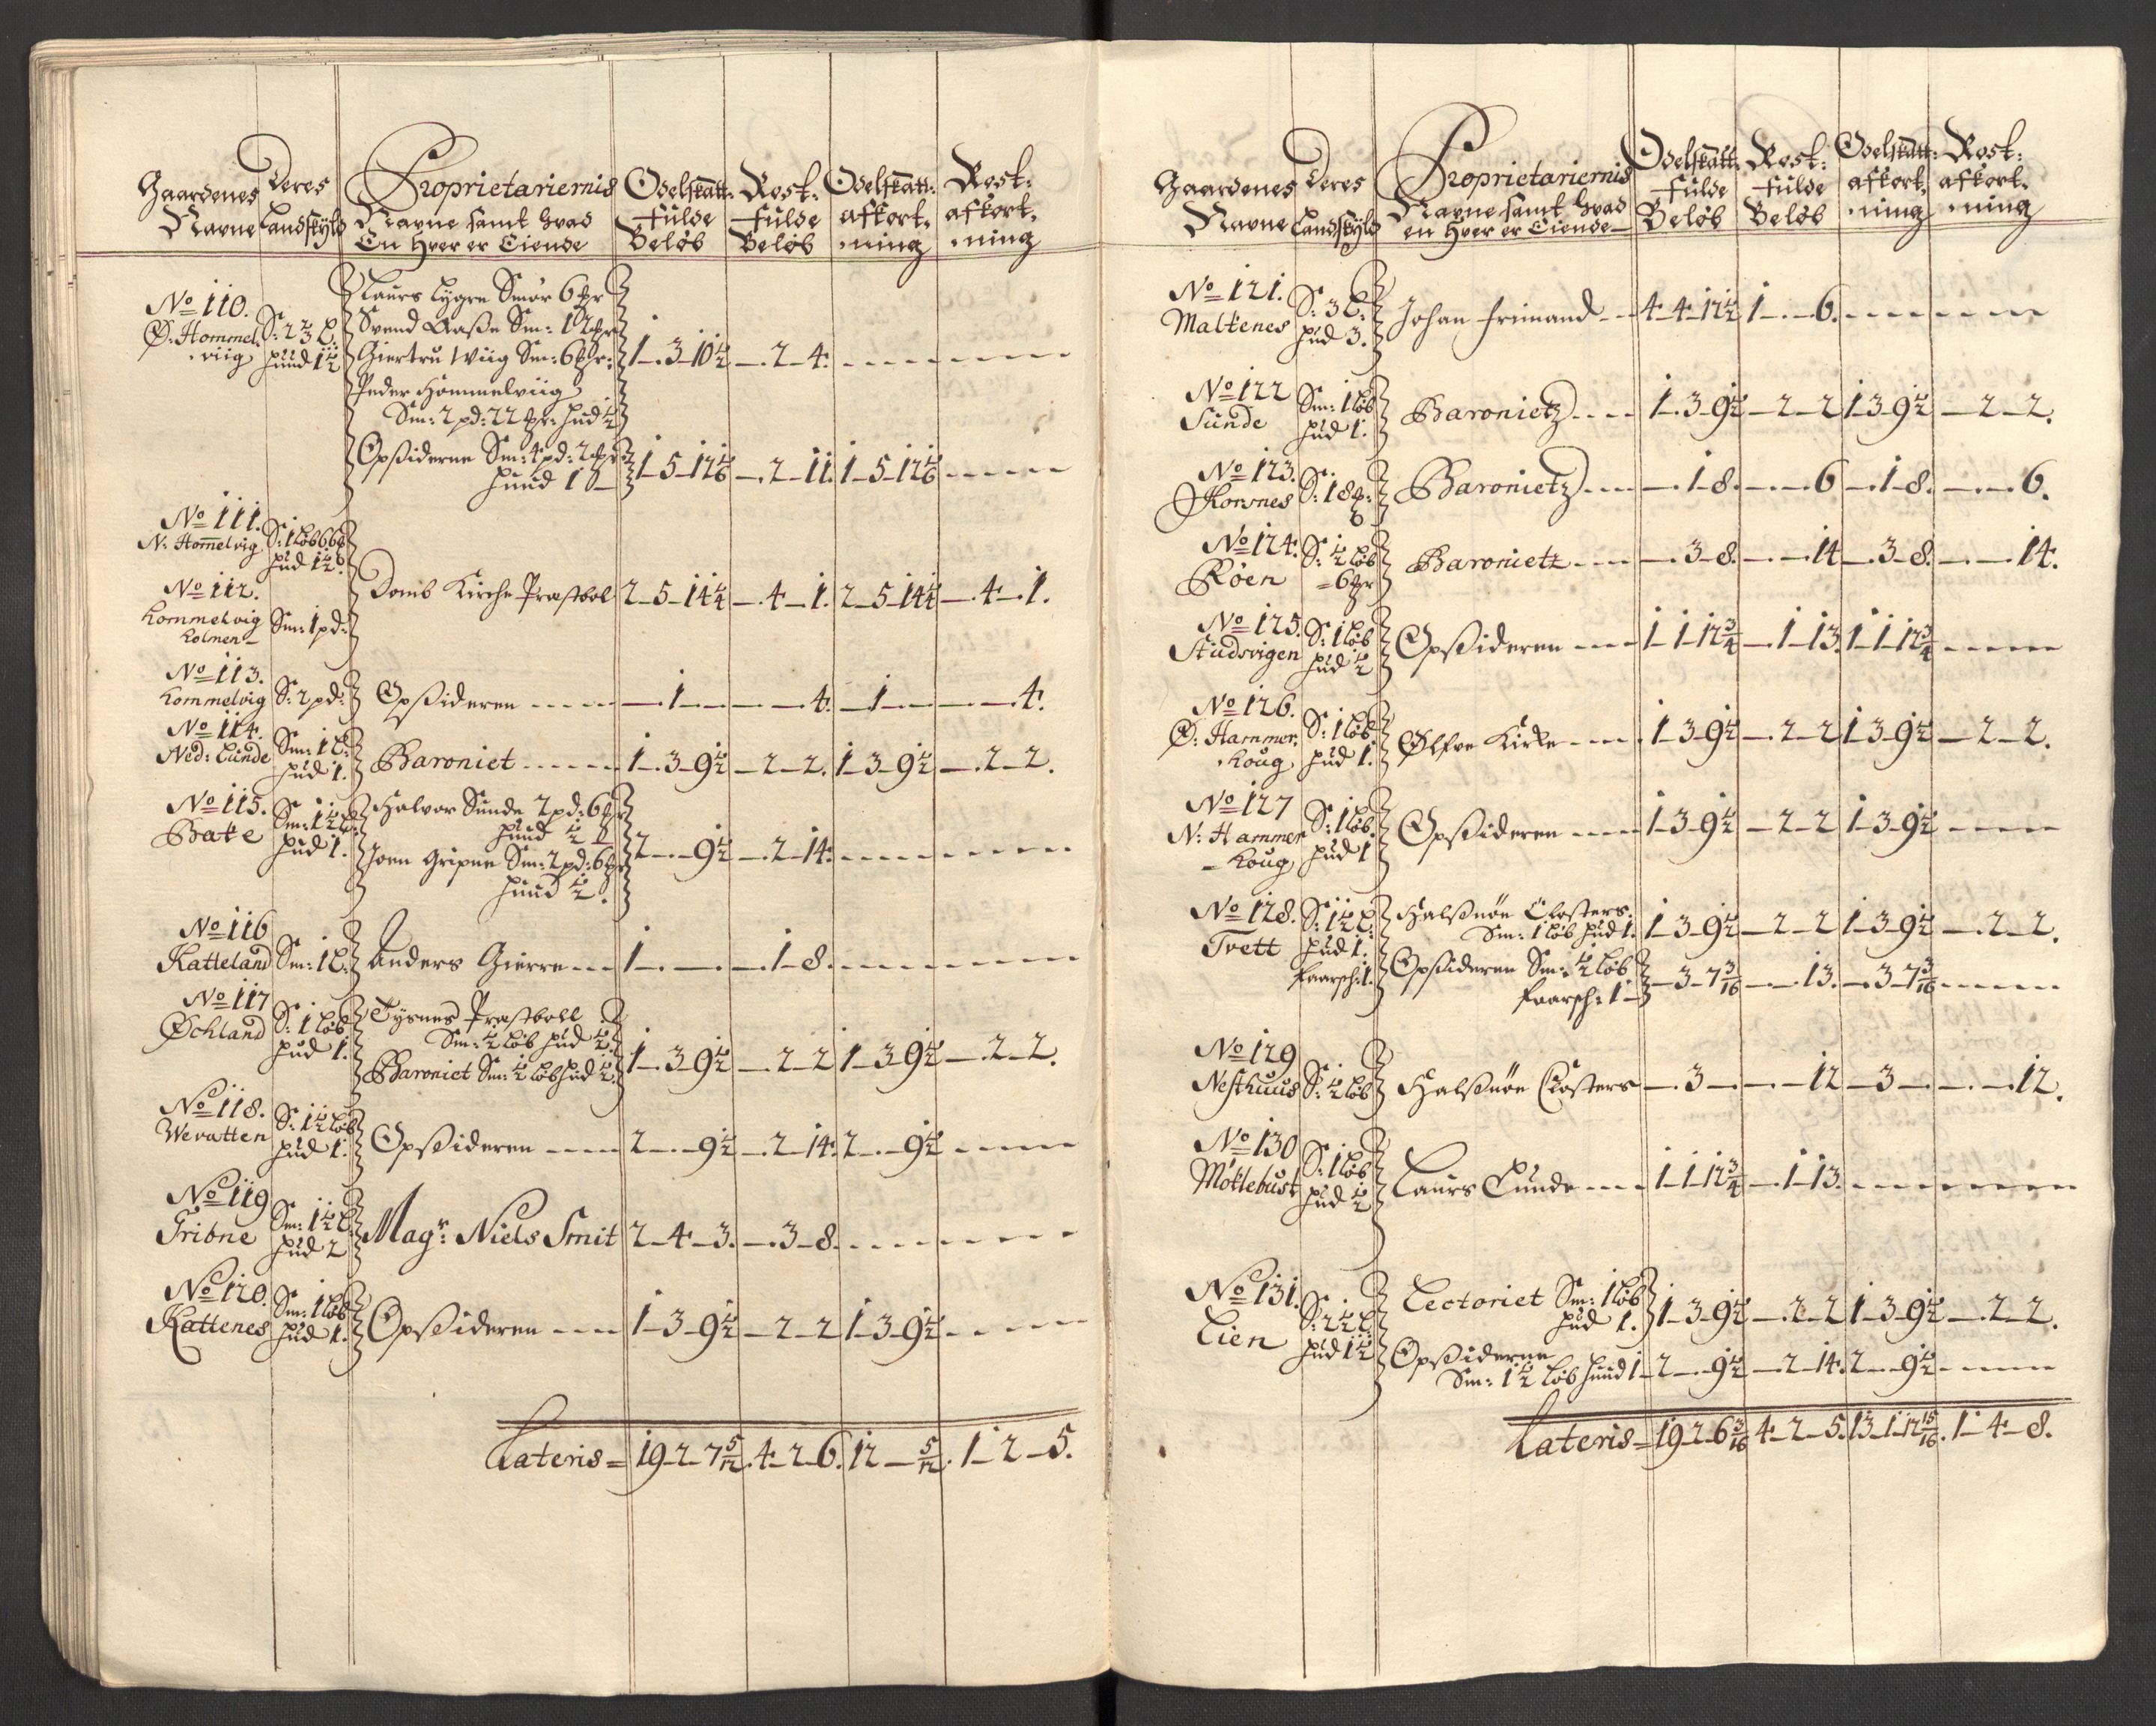 Gaardenes Navne | Deres Landskyld | Proprietariernis Navne samt hvad En hver er Eiende | Odelskatt: fulde Beløb | Rost: fulde Beløb | Odelskatt: afkort:ning | Rost: afkort:ning
No 110. Ø: Hommelviig | S: 2 2/3 L: hund 1½ | Laurs Lygre Smør 6
Svend Aaße Sm: 12
Giertru Wiig Sm: 6 | 1-3-10½ | -2-4.
Peder Hommelviig
Sm: 2 pd: 22 hud ½
Opsiderne Sm: 4 pd: 2
hund 1 | 1-5-12 1/6 | -2-11. | 1-5-12 1/6
No 111.
N: Homelvig | S: 1 Løb 6
hud 1½
No 112.
Hommelvig holmen | Sm: 1 pd: | Domb Kirche Præstbol | 2-5-14¼ | -4-1. | 2-5-14¼ | -4-1.
No 113.
Hommelvig | S: 2 pd: | Opsideren | -1- | -4. | -1- | -4.
No 114.
Ned: Lunde | Sm: 1 L: hud 1. | Baroniet | 1-3-9½ | -2-2. | 1-3-9½ | -2-2.
No 115.
Bake | Sm: 1½ L: hud 1. | Halvor Sunde 2 pd: 6
hund ½
Joen Gripne Sm: 2 pd: 6 | 2--9½ | -2-14.
hund ½.
No 116
Katteland | Sm: 1 L: | Anders Gierre | 1-- | -1-8.
No 117
Øchland | S: 1 Løb hud 1. | Tysnes Præstboll
Sm: ½ Løb hud ½.
Baroniet Sm: ½ Løb hud ½. | 1-3-9½ | -2-2 | 1-3-9½ | -2-2.
No 118.
Wevatten | S: 1½ Løb hud 1. | Opsideren | 2--9½ | -2-14. | 2--9½
No 119
Gribne | Sm: 1½ L: hud 2 | Magr: Niels Smit | 2-4-3. | -3-8.
No 120.
Kattenes | Sm: 1 Løb hud 1. | Opsideren | 1-3-9½ | -2-2 | 1-3-9½
Lateris = | 19-2-7 5/12. | 4-2-6. | 12- 5/12. | 1-2-5.
Gaardenes Navne | Deres Landskyld | Proprietariernis Navne samt hvad en hver er Eiende | Odelskatt: fulde Beløb | Rost: fulde Beløb | Odelskatt: afkort:ning | Rost: afkort:ning
No 121.
Maltenes | S: 3 L: hud 3. | Johan Frimand | 4-4-12½ | 1--6.
No 122
Sunde | Sm: 1 Løb hud 1. | Baronietz | 1-3-9½ | -2-2 | 1-3-9½ | -2-2.
No 123.
Korsnes | S: 18 | Baronietz | -1-8. | --6 | -1-8. | --6.
No 124.
Røen | S: ½ Løb - 6 | Baronietz | -3-8. | --14 | -3-8. | --14.
No 125.
Studsvigen | S: 1 Løb hud ½ | Opsideren | 1-1-12¾ | -1-13. | 1-1-12¾
No 126.
Ø: Hammerhoug | S: 1 Løb hud 1. | Ølfve Kirke | 1-3-9½ | -2-2 | 1-3-9½ | -2-2.
No 127
N: Hammerhoug | S: 1 Løb. hud 1 | Opsideren | 1-3-9½ | -2-2 | 1-3-9½
No 128.
Tvett | S: 1½ L: hud 1. faarsk: 1. | Halsnøe Closters.
Sm: 1 Løb hud 1. | 1-3-9½ | -2-2 | 1-3-9½ | -2-2.
Opsideren Sm: ½ Løb
faarsk: 1 | -3-7 3/16 | --13. | -3-7 3/16
No 129
Nesthuus | S: ½ Løb | Halsnøe Closters | -3- | --12 | -3- | --12.
No 130
Möklebust | S: 1 Løb hud ½ | Laurs Lunde | 1-1-12¾ | -1-13.
No 131.
Lien | S: 2½ L: hud 1½ | Lectoriet Sm: 1 Løb
hud 1. | 1-3-9½ | -2-2 | 1-3-9½ | -2-2.
Opsiderne
Sm: 1½ Løb hund 1 | 2--9½ | -2-14. | 2--9½
Lateris = | 19-2-6 3/16 | 4-2-5. | 13-1-12 15/16. | 1-4-8.